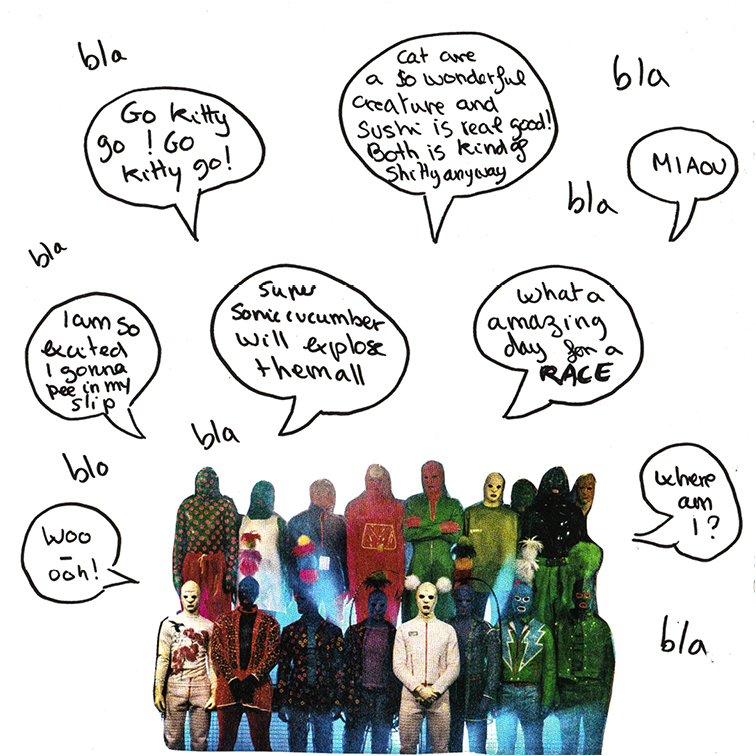 bla
Go kitty
go ! Go
kitty go!
cat are
a so wonderful
creature and
sushi is real good!
Both is kind of
shitty anyway
bla
MIAOU
bla
bla
I am so
excited
I gonna
pee in my
slip
super
sonic cucumber
will explose
them all
what a
amazing
day for a
RACE
bla
blo
where
am
I?
woo
-
ooh!
bla